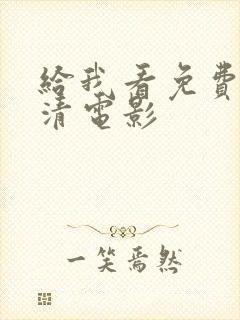 給我看免費
清電影
一笑焉然